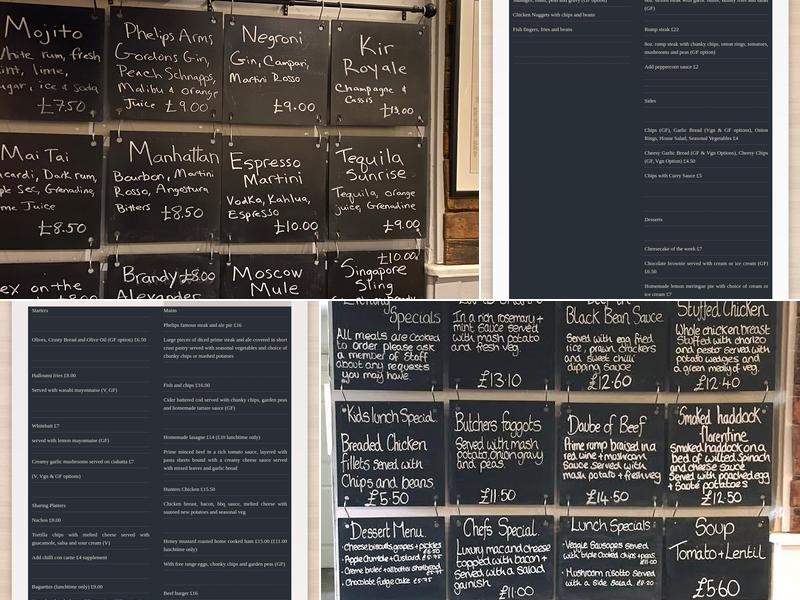 Mojito
White rum, fresh
mint, lime,
sugar, ice & soda
£7.50
Phelips Arms
Gordons Gin,
Peach Schnapps,
Malibu & orange
Juice £9.00
Negroni
Gin, Campari,
Martini Rosso
£9.00
Kir
Royale
Champagne &
Cassis
£13.00
Mai Tai
Bacardi, Dark rum,
Triple Sec, Grenadine,
Lime Juice
£8.50
Manhattan
Bourbon, Martini
Rosso, Angostura
Bitters £8.50
Espresso
Martini
Vodka, Kahlua,
Espresso
£10.00
Tequila
Sunrise
Tequila, orange
juice, Grenadine
£9.00
Sex on the
Brandy £8.00
Alexander
Moscow
Mule
£10.00
Singapore
Sling
Chicken Nuggets with chips and beans
Fish fingers, fries and beans
(GF)
Rump steak £22
8oz. rump steak with chunky chips, onion rings, tomatoes,
mushrooms and peas (GF option)
Add peppercorn sauce £2
Sides
Chips (GF), Garlic Bread (Vgn & GF options), Onion
Rings, House Salad, Seasonal Vegetables £4
Cheesy Garlic Bread (GF & Vgn Options), Cheesy Chips
(GF, Vgn Option) £4.50
Chips with Curry Sauce £5
Desserts
Cheesecake of the week £7
Chocolate brownie served with cream or ice cream (GF)
£6.50
Homemade lemon meringue pie with choice of cream or
ice cream £7
Starters
Olives, Crusty Bread and Olive Oil (GF option) £6.50
Halloumi fries £8.00
Served with wasabi mayonnaise (V, GF)
Whitebait £7
served with lemon mayonnaise (GF)
Creamy garlic mushrooms served on ciabatta £7
(V, Vgn & GF options)
Sharing Platters
Nachos £9.00
Tortilla chips with melted cheese served with
guacamole, salsa and sour cream (V)
Add chilli con carne £4 supplement
Baguettes (lunchtime only) £9.00
Mains
Phelips famous steak and ale pie £16
Large pieces of diced prime steak and ale covered in short
crust pastry served with seasonal vegetables and choice of
chunky chips or mashed potatoes
Fish and chips £16.00
Cider battered cod served with chunky chips, garden peas
and homemade tartare sauce (GF)
Homemade lasagne £14 (£10 lunchtime only)
Prime minced beef in a rich tomato sauce, layered with
pasta sheets bound with a creamy cheese sauce served
with mixed leaves and garlic bread
Hunters Chicken £15.50
Chicken breast, bacon, bbq sauce, melted cheese with
sauteed new potatoes and seasonal veg
Honey mustard roasted home cooked ham £15.00 (£11.00
lunchtime only)
With free range eggs, chunky chips and garden peas (GF)
Beef burger £16
Specials
All meals are cooked
to order please ask
a member of Staff
about any requests
you may have.
In a rich rosemary +
mint sauce served
with mash potato
and fresh veg.
£13.10
Black Bean Sauce
Served with egg fried
rice, prawn crackers
and sweet chilli
dipping sauce
£12.60
Stuffed Chicken
Whole chicken breast
Stuffed with chorizo
and pesto served with
potato wedges and
a green medley of veg.
£12.40
Kids lunch Special.
Breaded Chicken
fillets served with
Chips and beans
£5.50
Butchers faggots
Served with mash
potato onion gravy
and peas.
£11.50
Daube of Beef
Prime rump braised in a
red wine + mushroom
Sauce served with
mash potato + fresh veg
£14.50
Smoked haddock
florentine
Smoked haddock on a
bed of wilted Spinach
and cheese sauce
Served with poached egg
+ Saute potatoes
£12.50
Dessert Menu.
Cheese, biscuits, grapes + pickles
£6.50
Apple Crumble + Custard £5.75
Creme brulee + all butter shortbread
£5.75
Chocolate fudge cake £5.75
Chefs Special.
Luxury mac and cheese
topped with bacon +
served with a salad
garnish £11.00
Lunch Specials
Veggie Sausages served
with baked cooked chips + peas
£11.00
Mushroom risotto served
with a Side Salad. £11.20
Soup
Tomato + Lentil
£5.60